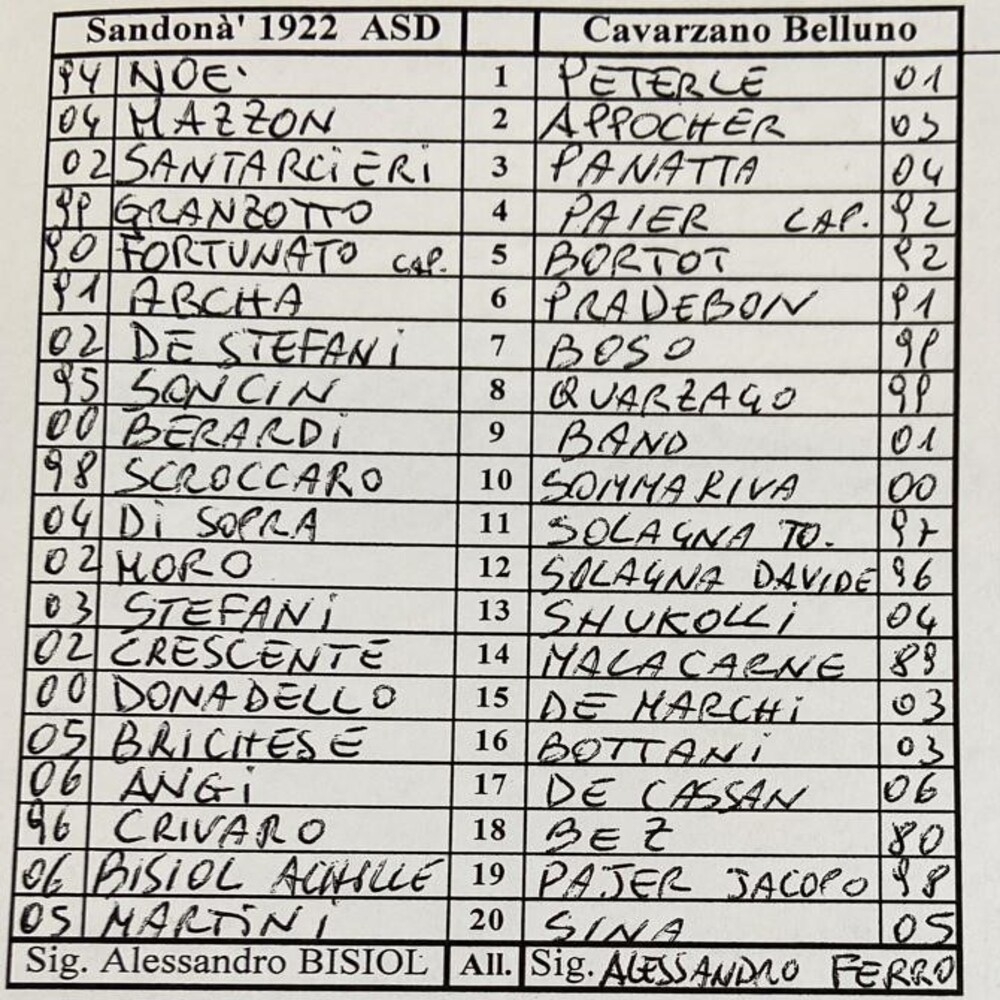 Sandonà' 1922 ASD Cavarzano Belluno
94 NOE' 1 PETERLE 01
04 MAZZON 2 APPOCHER 03
02 SANTARCiERi 3 PANATTA 04
99 GRANZOTTO 4 PAIER CAP. 92
90 FORTUNATO CAP. 5 BORTOT 92
91 ABCHA 6 PRADEBON 91
02 DE STEFANi 7 BOSO 99
95 SONCIN 8 QUARZAGO 99
00 BERARDi 9 BANO 01
98 SCROCCARO 10 SOMMARIVA 00
04 Di SOPRA 11 SOLAGNA TO. 97
02 MORO 12 SOLAGNA DAVIDE 96
03 STEFANi 13 SHUKOLLi 04
02 CRESCENTE 14 MALACARNE 89
00 DONADELLO 15 DE MARCHi 03
05 BRICHESE 16 BOTTANi 03
06 ANGi 17 DE CASSAN 06
96 CRIVARO 18 BEZ 80
06 BISIOL ACHILLE 19 PAJER JACOPO 98
05 MARTiNi 20 SINA 05
Sig. Alessandro BISIOL All. Sig. ALESSANDRO FERRO